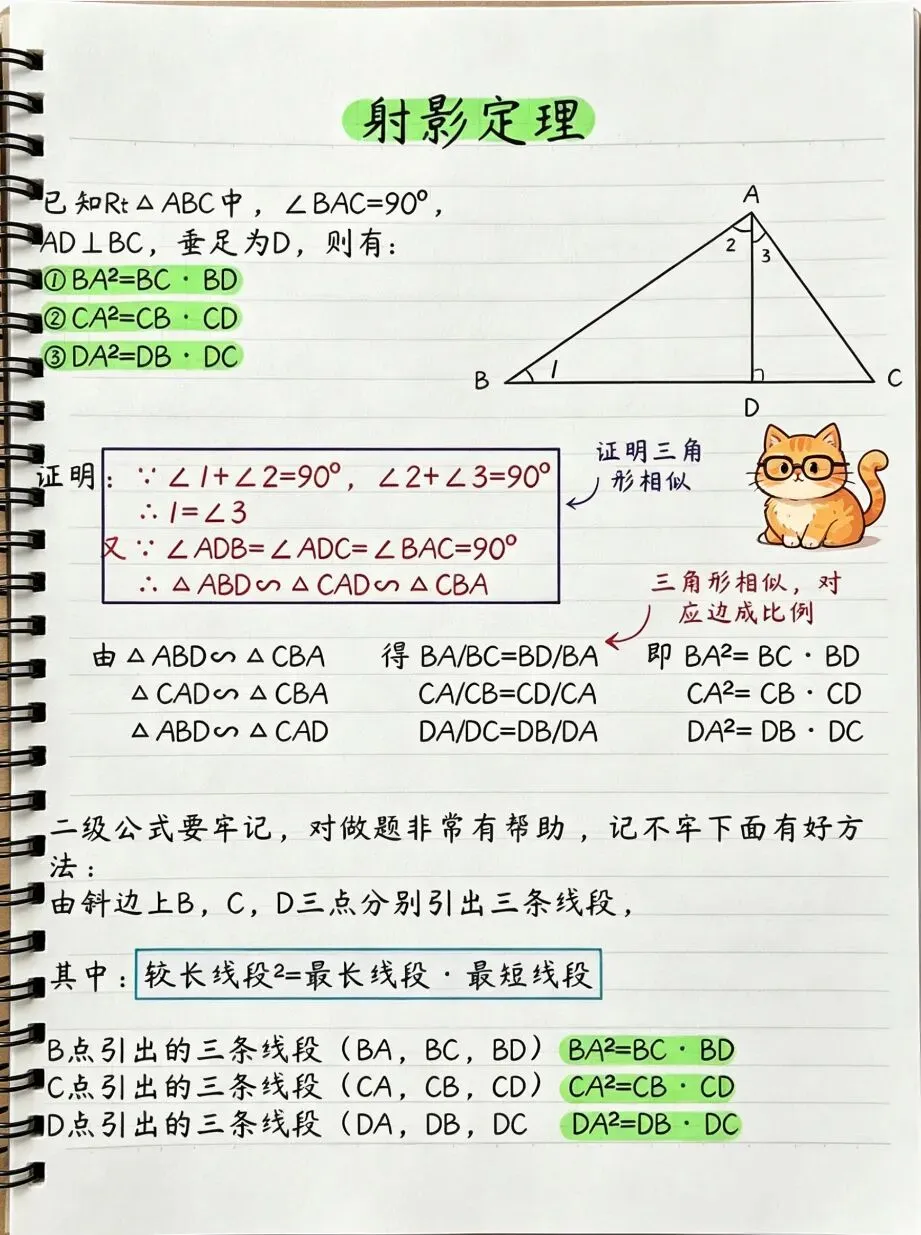 射影定理
已知Rt△ABC中，∠BAC=90°，
AD⊥BC，垂足为D，则有：
①BA²=BC·BD
②CA²=CB·CD
③DA²=DB·DC
A
2
3
B
1
C
D
证明：∵∠1+∠2=90°，∠2+∠3=90°
∴1=∠3
又∵∠ADB=∠ADC=∠BAC=90°
∴△ABD∽△CAD∽△CBA
证明三角
形相似
三角形相似，对
应边成比例
由△ABD∽△CBA 得 BA/BC=BD/BA 即 BA²=BC·BD
△CAD∽△CBA CA/CB=CD/CA CA²=CB·CD
△ABD∽△CAD DA/DC=DB/DA DA²=DB·DC
二级公式要牢记，对做题非常有帮助，记不牢下面有好方
法：
由斜边上B，C，D三点分别引出三条线段，
其中：较长线段²=最长线段·最短线段
B点引出的三条线段（BA，BC，BD）BA²=BC·BD
C点引出的三条线段（CA，CB，CD）CA²=CB·CD
D点引出的三条线段（DA，DB，DC DA²=DB·DC